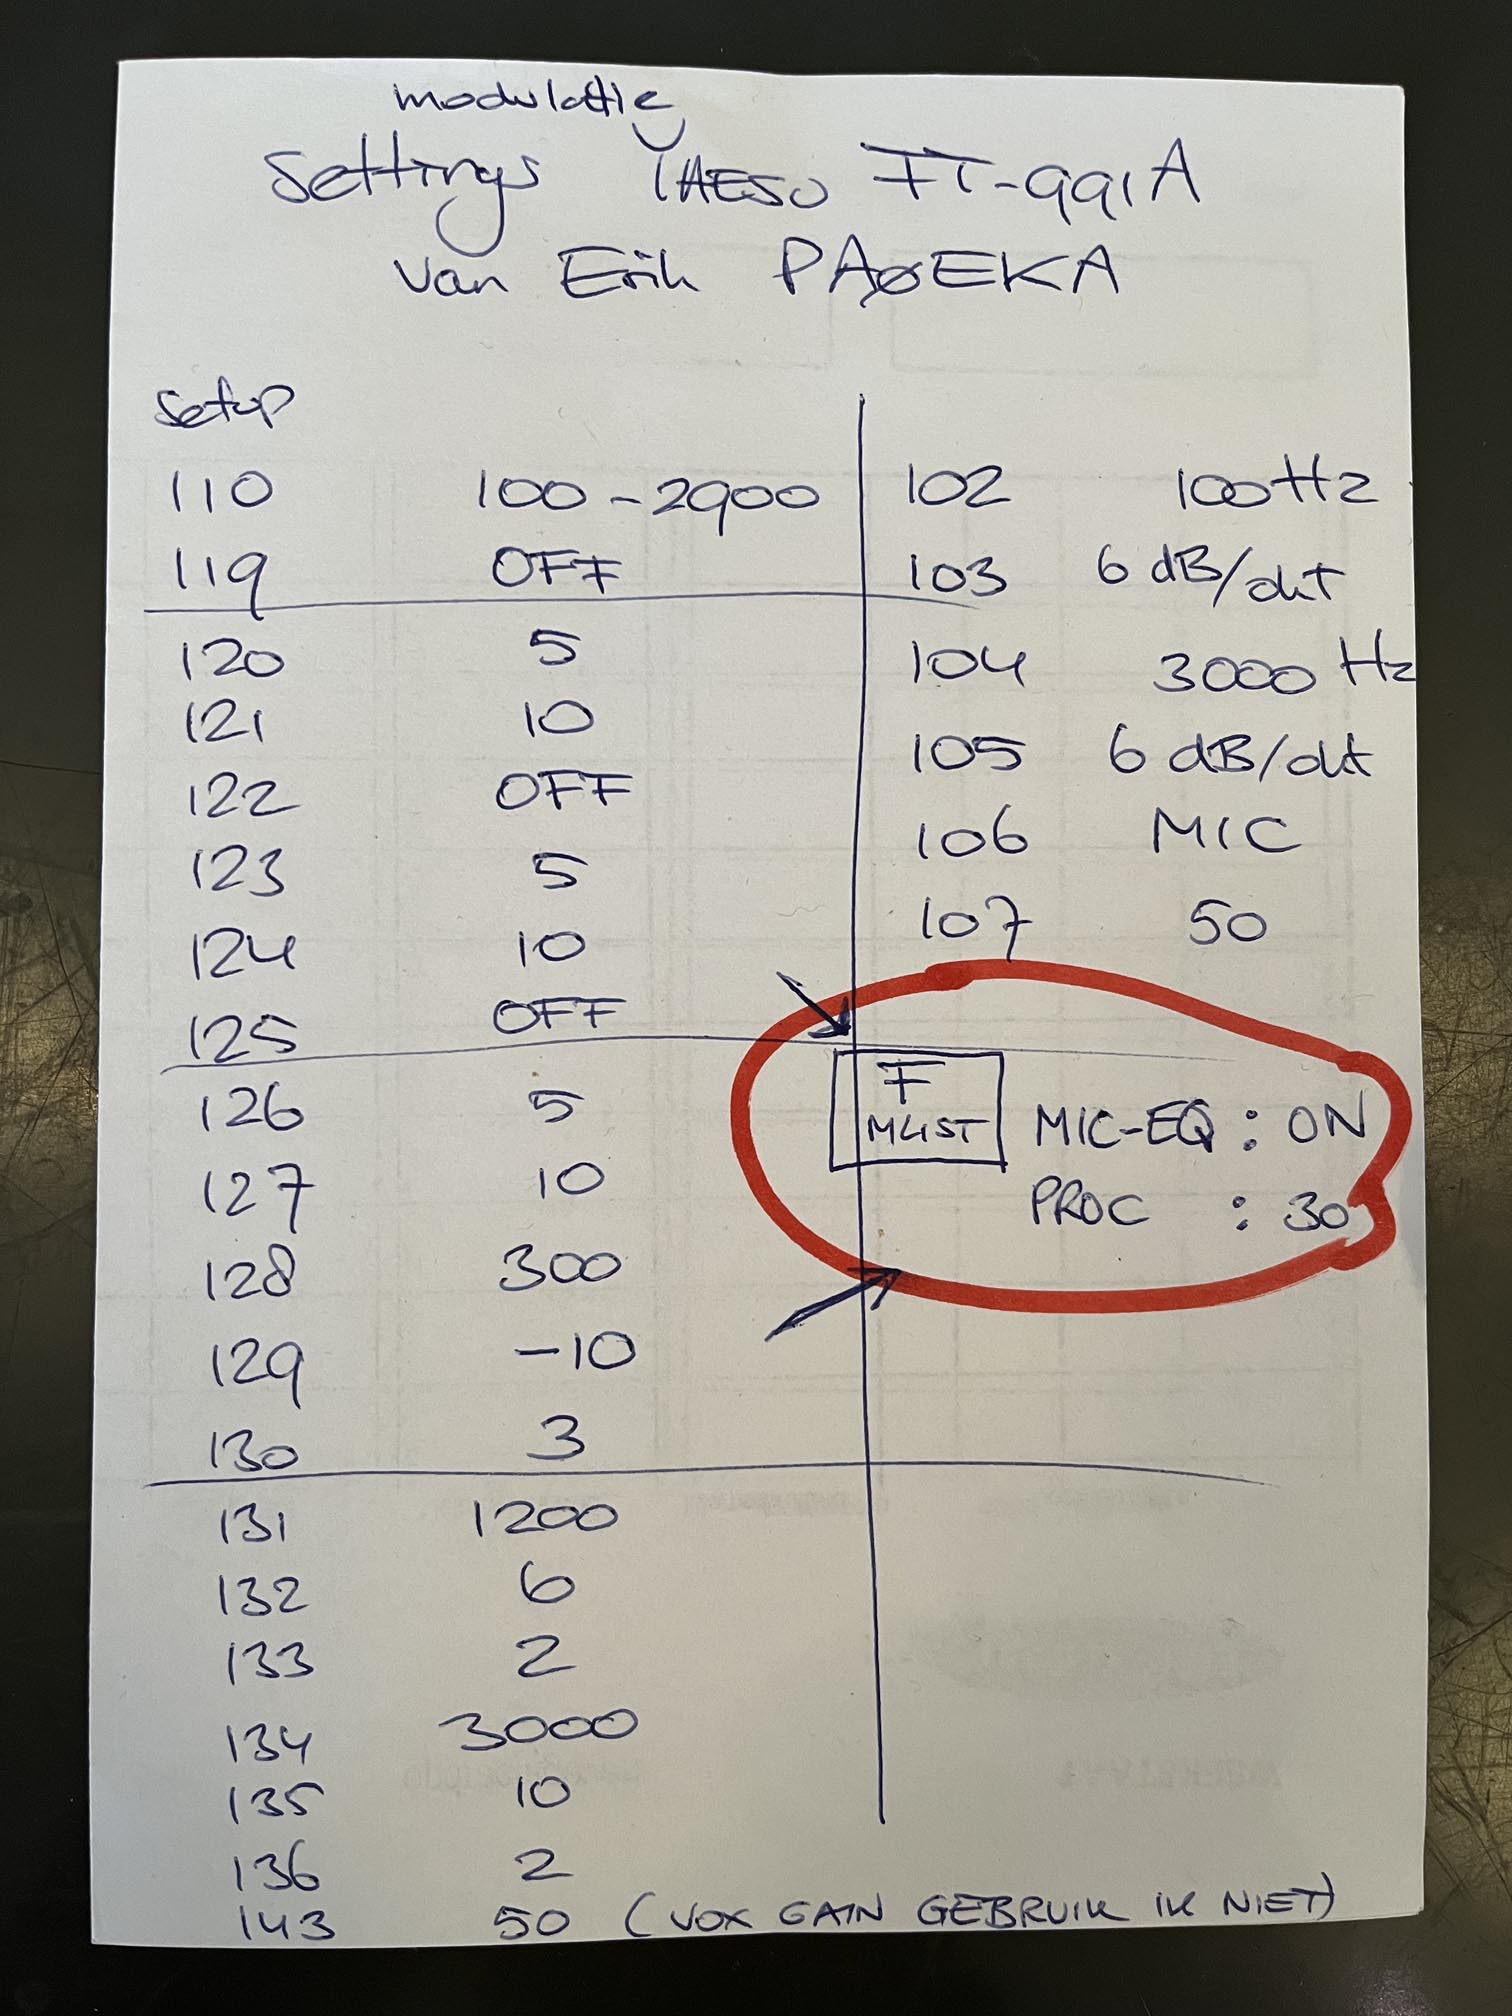 modulatie
Settings YAESU FT-991A
van Erik PAØEKA
Setup
110 100-2900
119 OFF
120 5
121 10
122 OFF
123 5
124 10
125 OFF
126 5
127 10
128 300
129 -10
130 3
131 1200
132 6
133 2
134 3000
135 10
136 2
143 50 (VOX GAIN GEBRUIK IK NIET)
102 100Hz
103 6 dB/okt
104 3000 Hz
105 6 dB/okt
106 MIC
107 50
F
MLIST
MIC-EQ : ON
PROC : 30